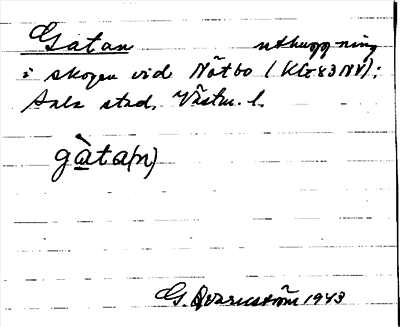 Gatan uthuggning
i skogen vid Nötbo (KG 83 NV);
Sala stad, Västm. l.
gàta(n)
G. Qvarnström 1943